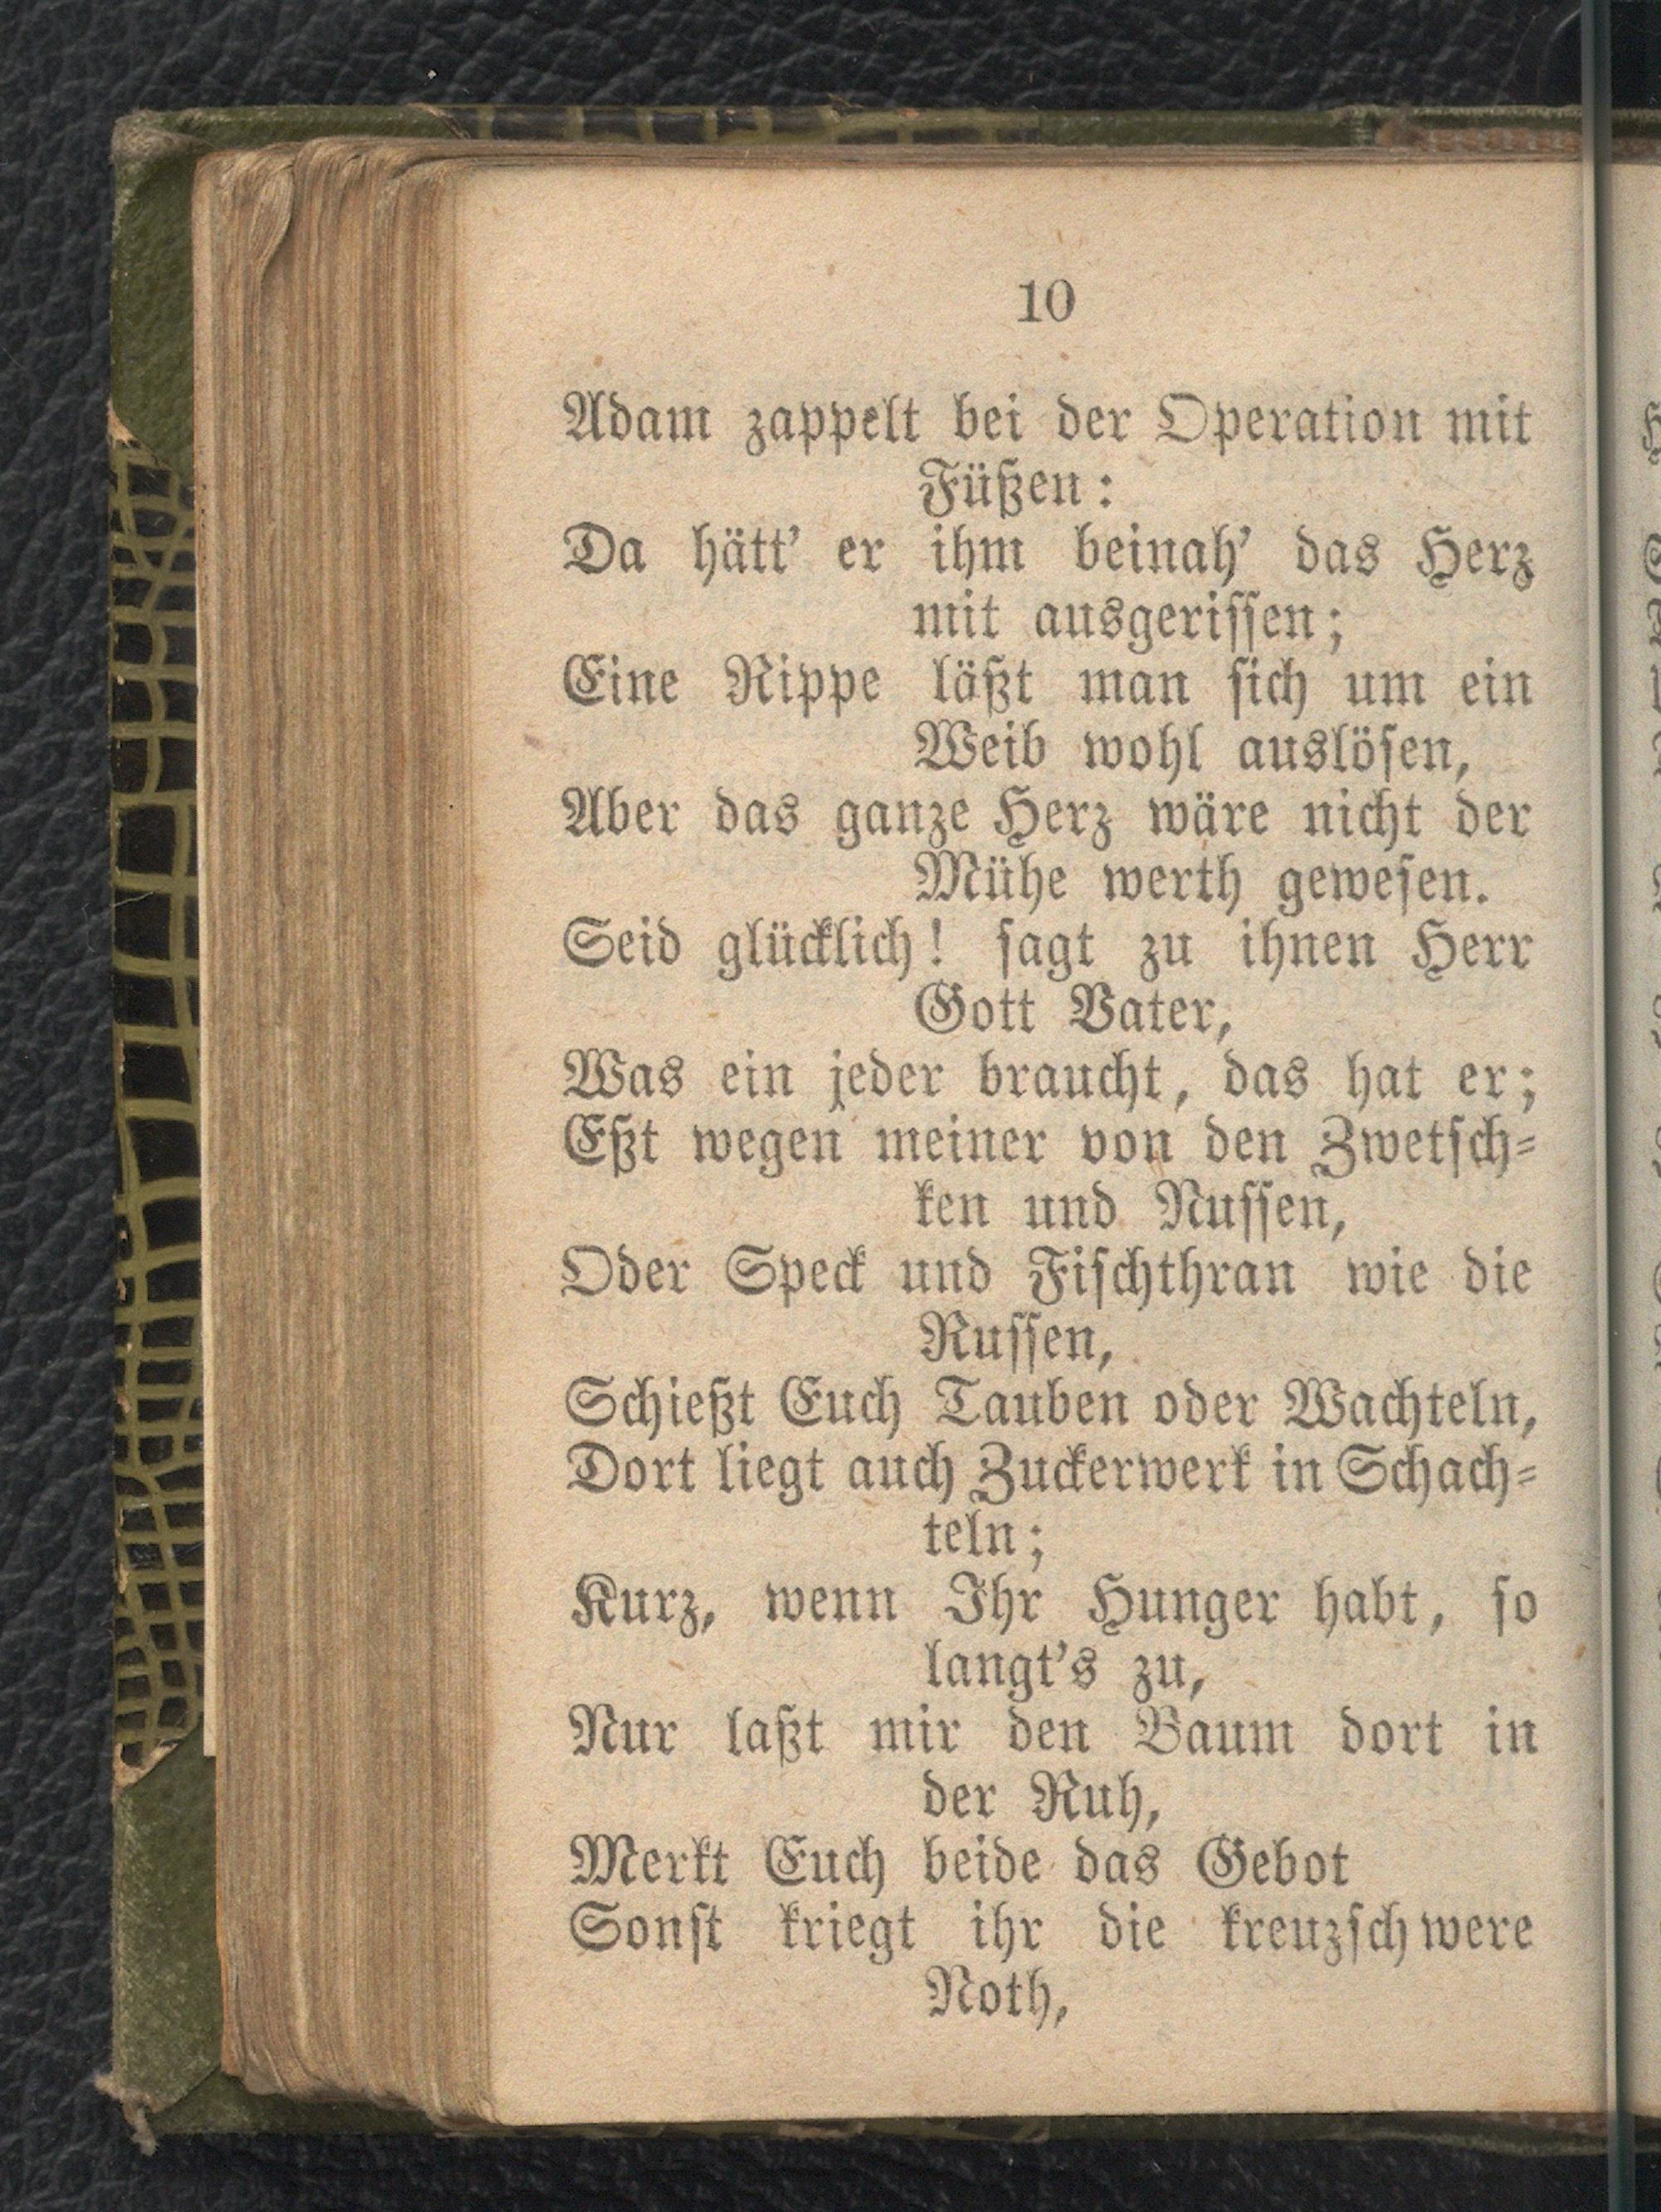 10
Adam zappelt bei der Operation mit
Füßen:
Da hätt' er ihm beinah' das Herz
mit ausgerissen;
Eine Rippe läßt man sich um ein
Weib wohl auslösen,
Aber das ganze Herz wäre nicht der
Mühe werth gewesen.
Seid glücklich! sagt zu ihnen Herr
Gott Vater,
Was ein jeder braucht, das hat er;
Eßt wegen meiner von den Zwetsch-
ken und Nussen,
Oder Speck und Fischthran wie die
Russen,
Schießt Euch Tauben oder Wachteln,
Dort liegt auch Zuckerwerk in Schach-
teln;
Kurz, wenn Ihr Hunger habt, so
langt's zu,
Nur laßt mir den Baum dort in
der Ruh,
Merkt Euch beide das Gebot
Sonst kriegt ihr die kreuzschwere
Noth,